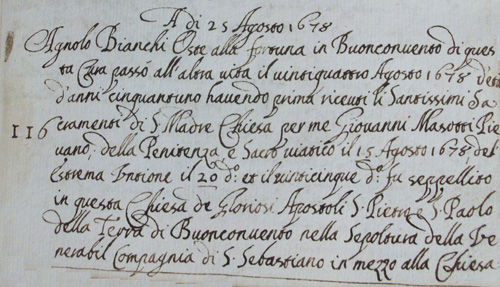 A di 25 Agosto 1678
Agnolo Bianchi Oste alla fortuna in Buonconvento di ques
ta Cura passò all'altra vita il vintiquattro Agosto 1678 d'età
d'anni cinquantuno havendo prima riceuti li Santissimi Sa
116 cramenti di S. Madre Chiesa per me Giovanni Masotti Pie
vano, della Penitenza e Sacro viatico il 15 Agosto 1678, del
Estrema Untione il 20 d.º et il vinticinque d.º fu seppellito
in questa Chiesa de Gloriosi Apostoli S. Pietro e S. Paolo
della Terra di Buonconvento nella Sepoltura della Ve
nerabil Compagnia di S. Sebastiano in mezzo alla Chiesa